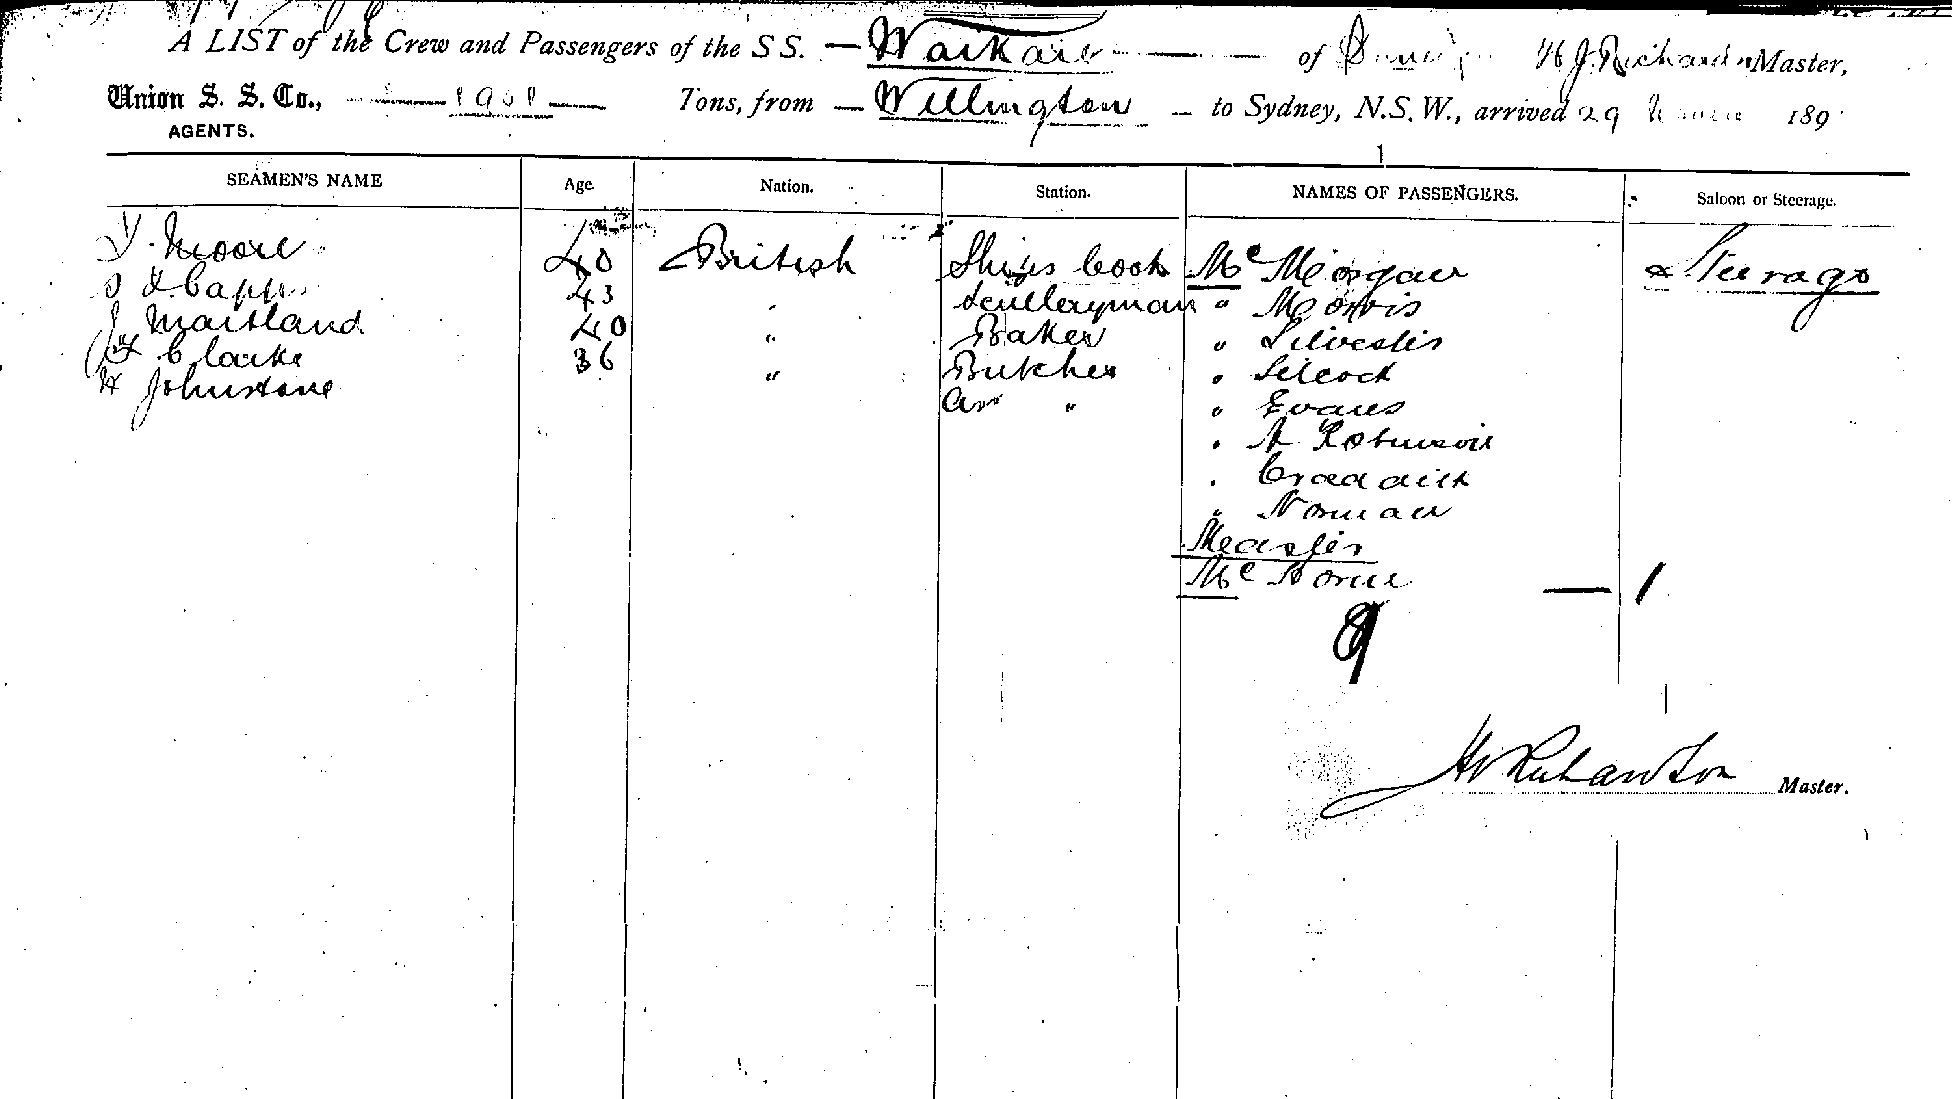 A LIST of the Crew and Passengers of the S S. — Waikare — of H J. Richardson Master,
Union S. S. Co., 1901 Tons, from — Wellington — to Sydney, N.S.W., arrived 29 189
AGENTS.
SEAMEN'S NAME Age. Nation. Station. NAMES OF PASSENGERS. Saloon or Steerage.
Moore 40 British Ships Cook Mr Morgan Steerage
Capp 43 " Sculleryman " Morris
J Maitland 40 " Baker " Silvester
Clarke 36 " Butcher " Silcock
H Johnstone " " Evans
" A Robinson
" Craddick
" Norman
Measter
Mr Horne — 1
9
Richardson Master.